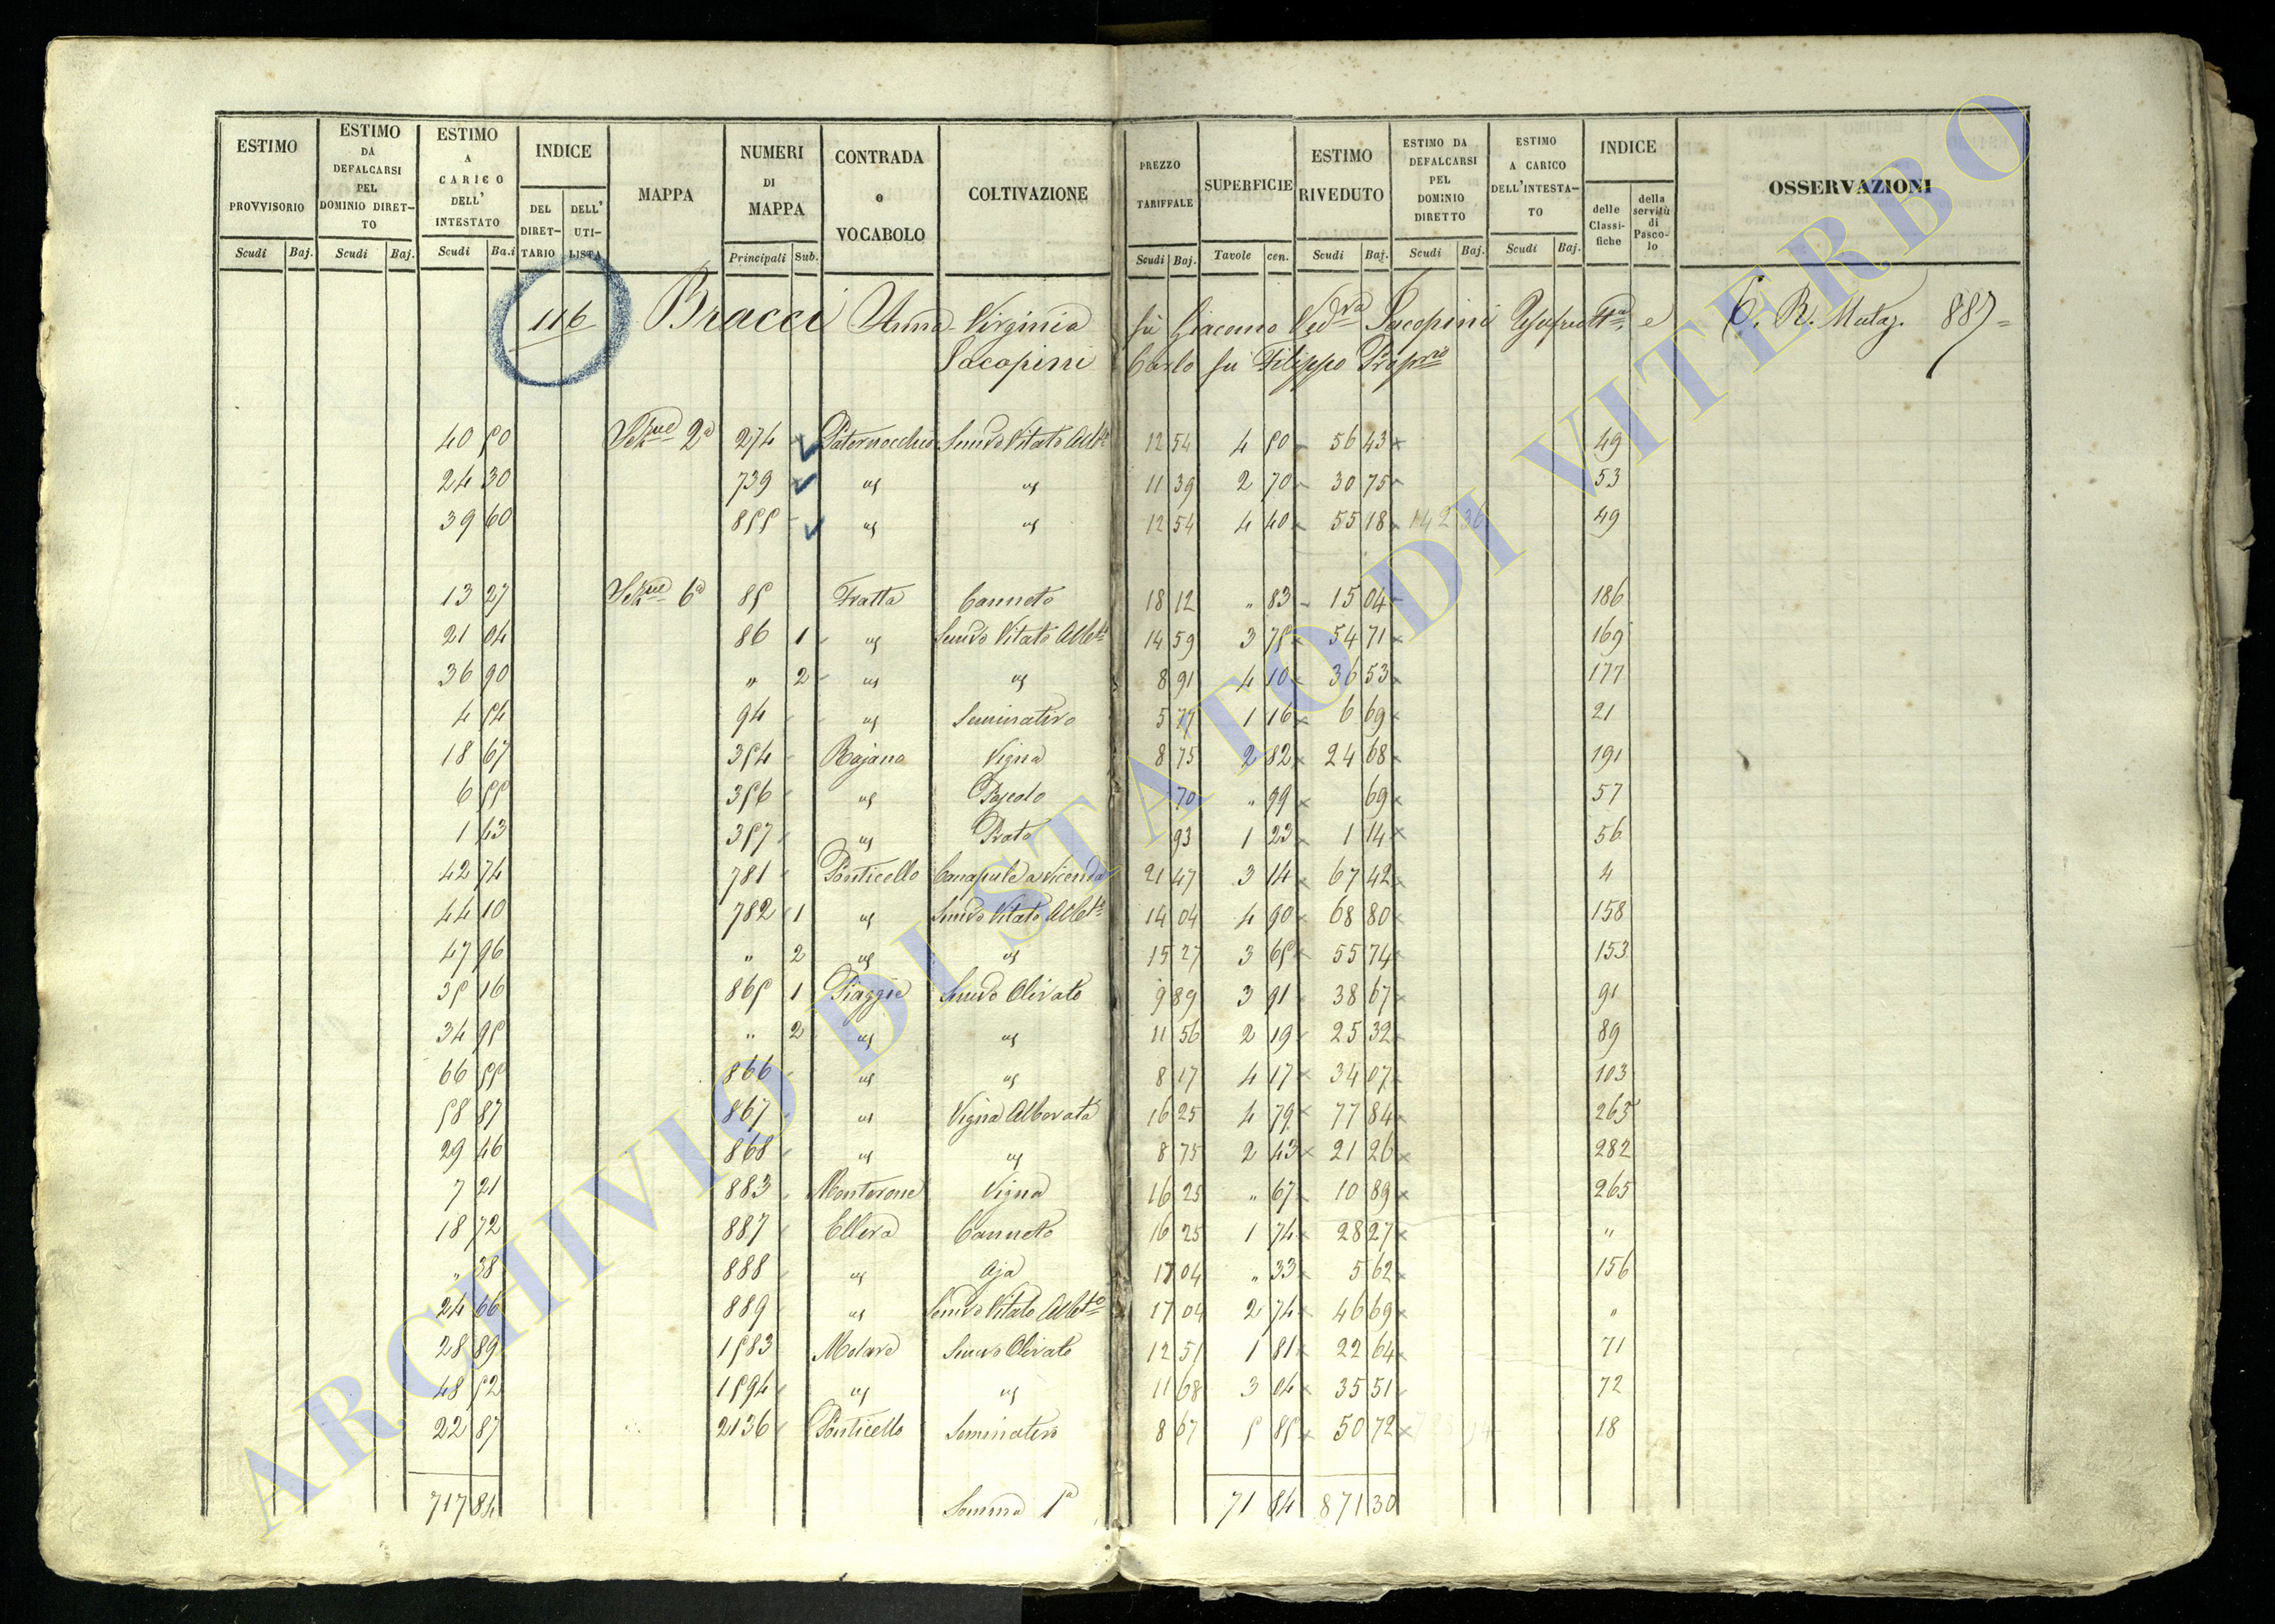 ESTIMO PROVVISORIO Scudi Baj. ESTIMO DA DEFALCARSI PEL DOMINIO DIRET-TO Scudi Baj. ESTIMO A CARICO DELL' INTESTATO Scudi Ba.i INDICE DEL DIRET-TARIO DELL' UTI-LISTA MAPPA NUMERI DI MAPPA Principali Sub. CONTRADA o VOCABOLO COLTIVAZIONE PREZZO TARIFFALE Scudi Baj. SUPERFICIE Tavole cen. ESTIMO RIVEDUTO Scudi Baj. ESTIMO DA DEFALCARSI PEL DOMINIO DIRETTO Scudi Baj. ESTIMO A CARICO DELL'INTESTA-TO Scudi Baj. INDICE delle Classi-fiche della servitù di Pasco-lo OSSERVAZIONI
116 Bracci Anna Virginia fù Giacomo Ved.va Jacopini Usufrutt.a e C. R. Mutaz. 887
Jacopini Carlo fù Filippo Prop.rio
40 50 2a 274 Paternocchio Semvo Vitato Albto 12 54 4 50 56 43 49
24 30 739 us us 11 39 2 70 30 75 53
39 60 855 us us 12 54 4 40 55 18 142 36 49
13 27 6a 85 Fratta Canneto 18 12 " 83 15 04 186
21 04 86 1 us Semvo Vitato Albto 14 59 3 75 54 71 169
36 90 " 2 us us 8 91 4 10 36 53 177
4 54 94 us Seminativo 5 77 1 16 6 69 21
18 67 354 Rajano Vigna 8 75 2 82 24 68 191
6 55 356 us Pascolo 70 " 99 69 57
1 43 357 us Prato 93 1 23 1 14 56
42 74 781 Ponticello Canapule a Vicenda 21 47 3 14 67 42 4
44 10 782 1 us Semvo Vitato Albto 14 04 4 90 68 80 158
47 96 " 2 us us 15 27 3 65 55 74 153
35 16 865 1 Piaggie Semvo Olivato 9 89 3 91 38 67 91
34 95 " 2 us us 11 56 2 19 25 32 89
66 55 866 us us 8 17 4 17 34 07 103
58 87 867 us Vigna Alborata 16 25 4 79 77 84 265
29 46 868 us us 8 75 2 43 21 26 282
7 21 883 Monterone Vigna 16 25 " 67 10 89 265
18 72 887 Ellera Canneto 16 25 1 74 28 27 "
" 38 888 us Aja 17 04 " 33 5 62 156
24 66 889 us Semvo Vitato Albto 17 04 2 74 46 69 "
28 89 1583 Molare Semvo Olivato 12 51 1 81 22 64 71
48 52 1594 us us 11 68 3 04 35 51 72
22 87 2136 Ponticello Seminativo 8 67 5 85 50 72 18
717 84 Somma 1a 71 84 871 30
ARCHIVIO DI STATO DI VITERBO